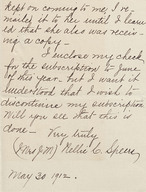 kept on coming to me, I re-
mailed it to her until I learn-
ed that she also was receiv-
ing a copy -
I inclose my check
for the subscription to June
of this year - but I want it
understood that I wish to
discontinue my subscription
Will you see that this is
done - Very truly
(Mrs J M) Nellie C. Speer
May 30 1912.